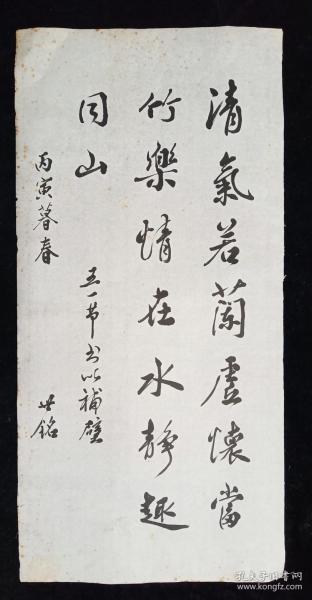 清氣若蘭虛懷當
竹樂情在水靜趣
同山
五一节书以補壁
丙寅暮春
世銘
孔夫子旧书网
www.kongfz.com